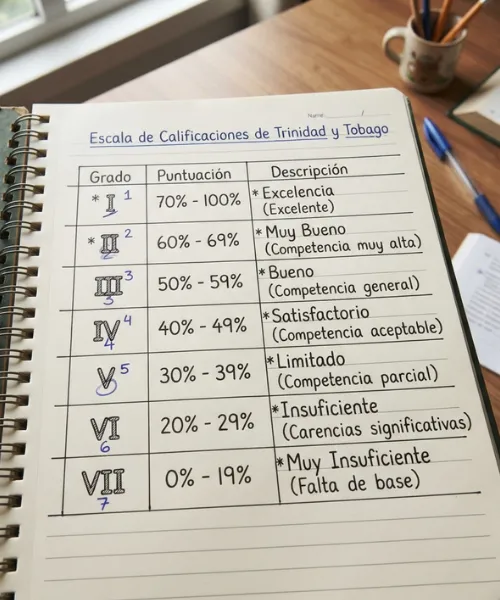 Name: /
Escala de Calificaciones de Trinidad y Tobago
Grado Puntuación Descripción
* I 1 70% - 100% * Excelencia
(Excelente)
* II 2 60% - 69% * Muy Bueno
2 (Competencia muy alta)
III 3 50% - 59% * Bueno
3 (Competencia general)
IV 4 40% - 49% * Satisfactorio
4 (Competencia aceptable)
V 5 30% - 39% * Limitado
(Competencia parcial)
VI 20% - 29% * Insuficiente
6 (Carencias significativas)
VII 0% - 19% * Muy Insuficiente
7 (Falta de base)